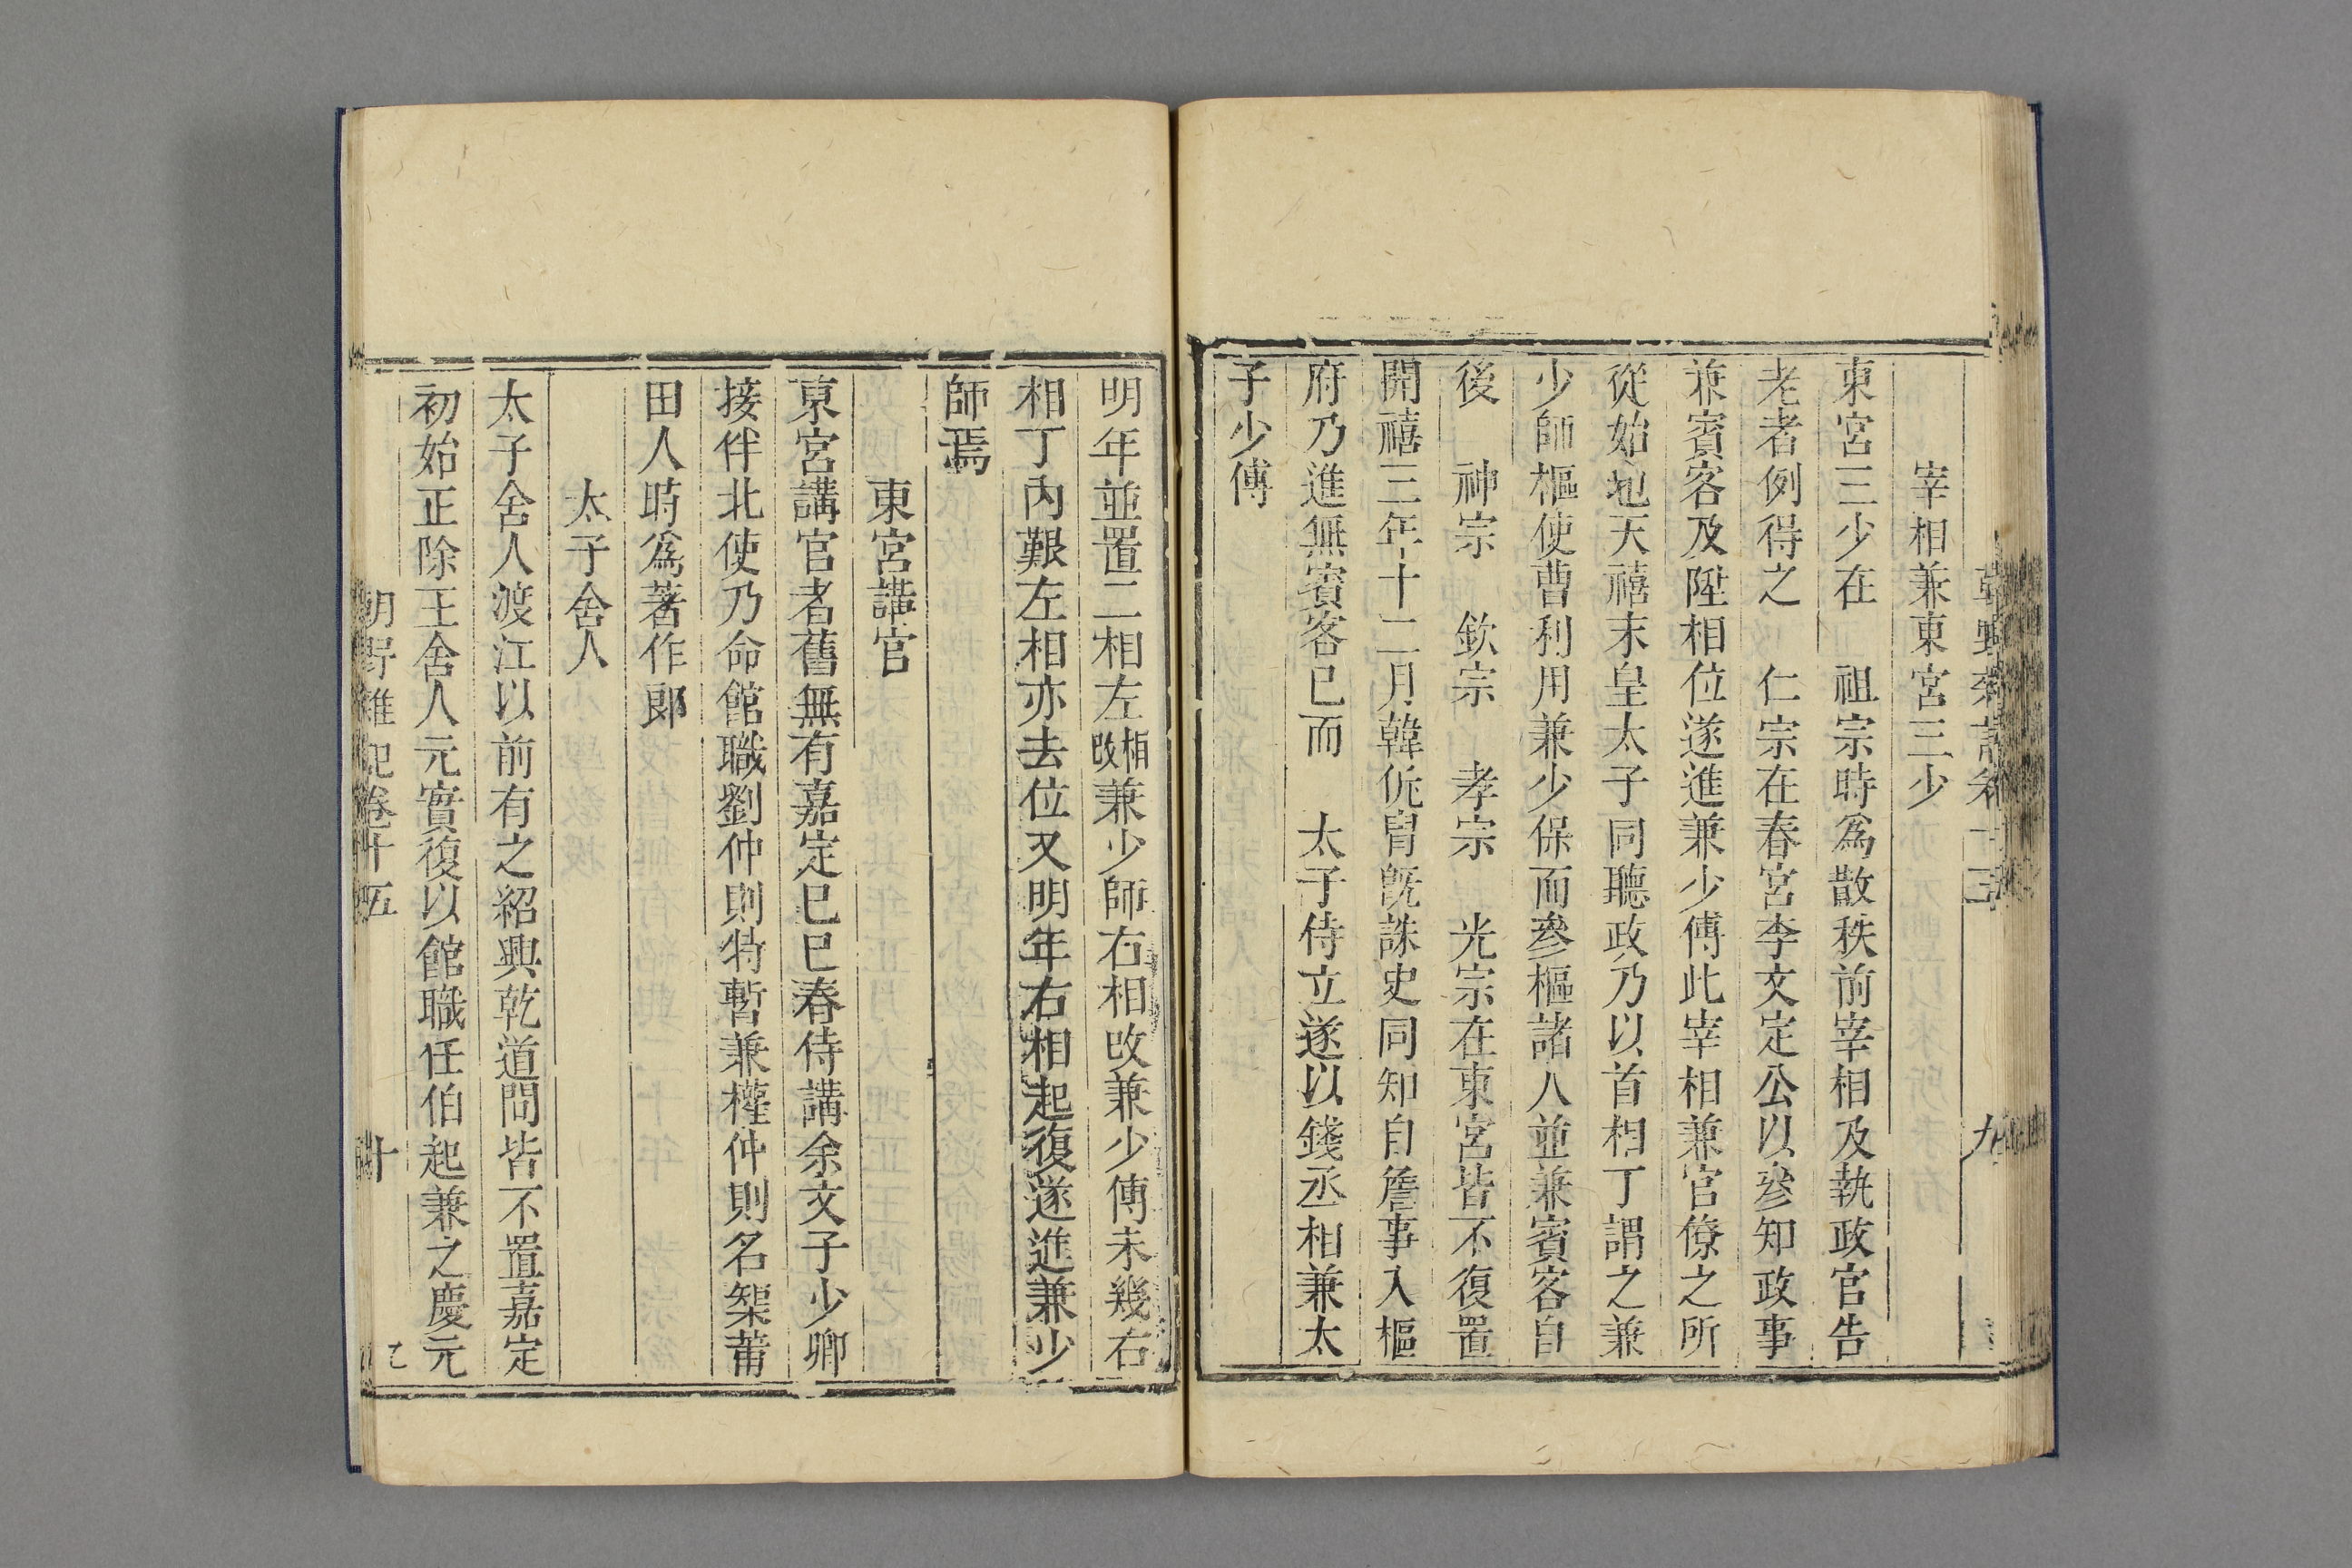 宰相兼東宮三少
東宮三少在　祖宗時爲散秩前宰相及執政官告
老者例得之　仁宗在春宮李文定公以參知政事
兼賓客及陞相位遂進兼少傅此宰相兼官僚之所
從始也天禧末皇太子同聽政乃以首相丁謂之兼
少師樞使曹利用兼少保而參樞諸人並兼賓客自
後　神宗　欽宗　孝宗　光宗在東宮皆不復置
開禧三年十二月韓侂胄旣誅史同知自詹事入樞
府乃進無賓客已而　太子侍立遂以錢丞相兼太
子少傅
明年並置二相左相改兼少師右相改兼少傅未幾右
相丁內艱左相亦去位又明年右相起復遂進兼少
師焉
東宮講官
東宮講官者舊無有嘉定巳巳春侍講余文子少卿
接伴北使乃命館職劉仲則特暫兼權仲則名榘莆
田人時爲著作郎
太子舍人
太子舍人渡江以前有之紹興乾道間皆不置嘉定
初始正除王舍人元實復以館職任伯起兼之慶元
朝野雜記卷十五
十